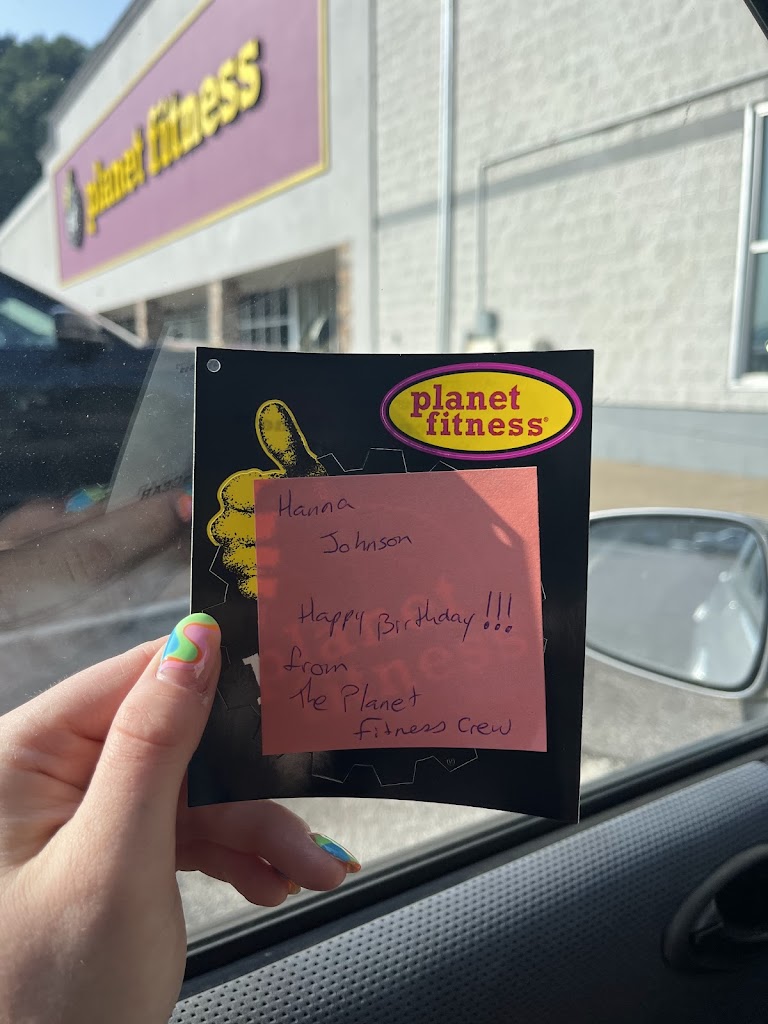 planet fitness
planet
fitness®
Hanna
Johnson
Happy Birthday!!!
from
The Planet
Fitness Crew